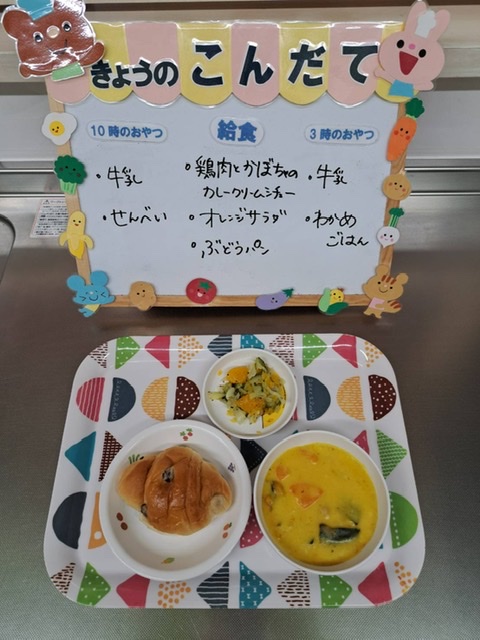 きょうの こんだて
10時のおやつ
・牛乳
・せんべい
給食
・鶏肉とかぼちゃの
カレークリームシチュー
・オレンジサラダ
・ぶどうパン
3時のおやつ
・牛乳
・わかめ
ごはん